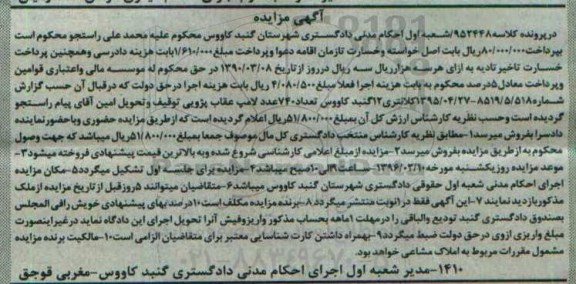 آگهی مزایده
درپرونده کلاسه۹۵۲۴۴۸/شعبه اول احکام مدنی دادگستری شهرستان گنبد کاووس محکوم علیه محمد علی راستجو محکوم است
بپرداخت۸۰/۰۰۰/۰۰۰ریال بابت اصل خواسته وخسارت تازمان اقامه دعوا وپرداخت مبلغ۱/۶۱۰/۰۰۰بابت هزینه دادرسی وهمچنین پرداخت
خسارت تاخیرتادیه به ازای هر هزارریال سه ریال درروز ازتاریخ ۱۳۹۰/۰۳/۰۸ در حق محکوم له موسسه مالی واعتباری قوامین
وپرداخت معادل۵درصد محکوم به بابت هزینه اجرا فعلا مبلغ۴/۰۸۰/۵۰۰ ریال بابت هزینه اجرا درحق دولت که درقبال آن حسب گزارش
شماره۸۵۱۹/۵/۵۱۸-۱۳۹۵/۰۴/۲۷کلانتری۱۲گنبد کاووس تعداد۷۴۰عدد لامپ عقاب پژویی توقیف وتحویل امین آقای پیام راستجو
گردیده است وحسب نظریه کارشناس ارزش کل آن بمبلغ۵۱/۸۰۰/۰۰۰ریال اعلام گردیده است که ازطریق مزایده حضوری وباحضورنماینده
دادسرا بفروش میرسد۱-مطابق نظریه کارشناس منتخب دادگستری کل مال موصوف جمعا بمبلغ۵۱/۸۰۰/۰۰۰ریال میباشد که جهت وصول
محکوم به ازطریق مزایده بفروش میرسد۲-مزایده از مبلغ اعلامی کارشناسی شروع شده وبه بالاترین قیمت پیشنهادی فروخته میشود۳-
موعد مزایده روزیکشنبه مورخه ۱۳۹۶/۰۲/۱۰ ساعت۹الی۱۰صبح میباشد۴-مزایده برای جلسه اول تشکیل میگردد۵-مکان مزایده
اجرای احکام مدنی شعبه اول حقوقی دادگستری شهرستان گنبد کاووس میباشد۶-متقاضیان میتوانند ۵روزقبل از تاریخ مزایده ازملک
مذکوربازدید نمایند ۷-این آگهی فقط در۱نوبت منتشر میگردد۸-برنده مزایده مکلف است۱۰درصد بهای پیشنهادی خویش رافی المجلس
بصندوق دادگستری گنبد تودیع والباقی را درمهلت ۱ماهه بحساب مذکور واریزوفیش آنرا تحویل اجرای این دادگاه نماید درغیراینصورت
مبلغ واریزی ازوی درحق دولت ضبط میگردد۹-بهمراه داشتن کارت شناسایی معتبر برای متقاضیان الزامی است۱۰-مالکیت برنده مزایده
مشمول مقررات مربوط به املاک مشاعی خواهد بود.
۱۴۱۰-مدیر شعبه اول اجرای احکام مدنی دادگستری گنبد کاووس-مغربی قوجق